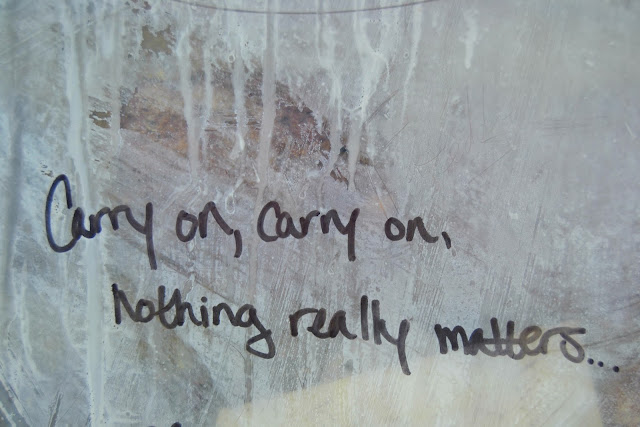 Carry on, carry on,
Nothing really matters....